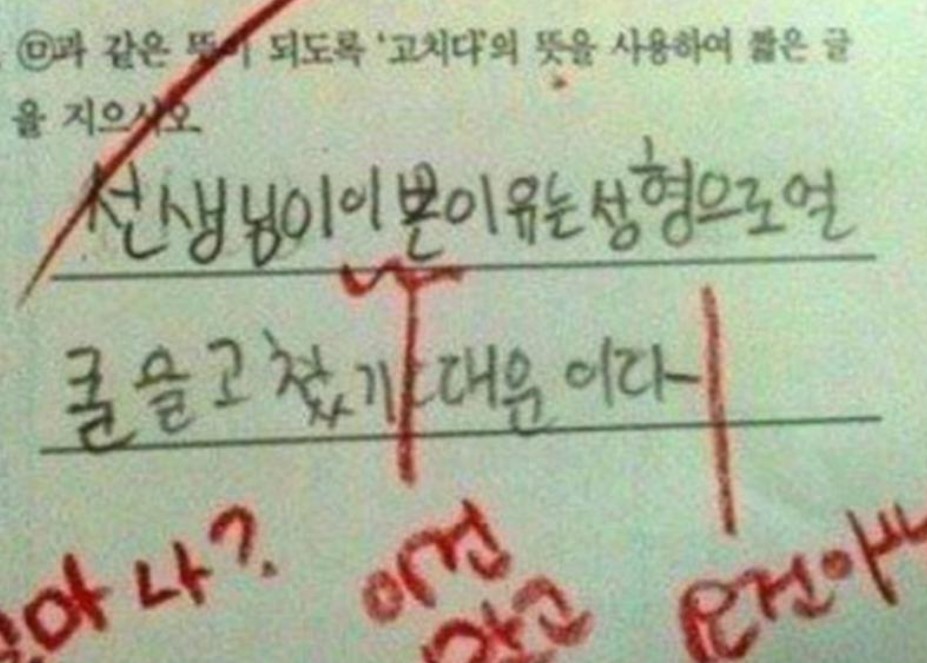 ㉤과 같은 뜻이 되도록 '고치다'의 뜻을 사용하여 짧은 글
을 지으시오
선생님이이쁜이유는성형으로얼
굴을고쳤기때문이다
나?
이건
맞고